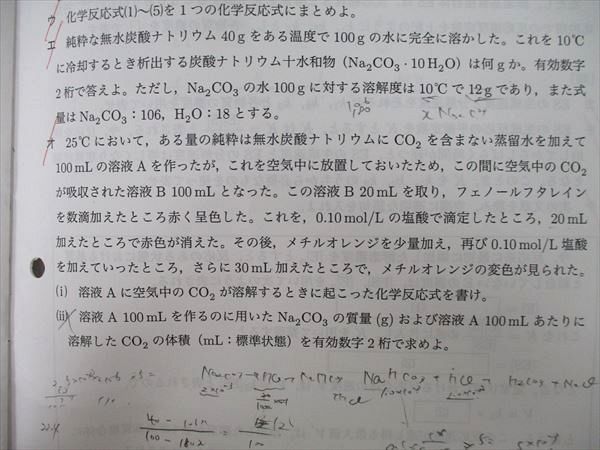 ウ 化学反応式(1)~(5)を1つの化学反応式にまとめよ。
エ 純粋な無水炭酸ナトリウム 40g をある温度で 100g の水に完全に溶かした。これを 10℃
に冷却するとき析出する炭酸ナトリウム十水和物 (Na₂CO₃・10H₂O) は何gか。有効数字
2桁で答えよ。ただし, Na₂CO₃ の水 100g に対する溶解度は 10℃で 12g であり, また式
量は Na₂CO₃:106, H₂O:18 とする。
オ 25℃において, ある量の純粋は無水炭酸ナトリウムに CO₂ を含まない蒸留水を加えて
100mL の溶液 A を作ったが, これを空気中に放置しておいたため, この間に空気中の CO₂
が吸収された溶液 B 100mL となった。この溶液 B 20mL を取り, フェノールフタレイン
を数滴加えたところ赤く呈色した。これを, 0.10mol/L の塩酸で滴定したところ, 20mL
加えたところで赤色が消えた。その後, メチルオレンジを少量加え, 再び 0.10mol/L 塩酸
を加えていったところ, さらに 30mL 加えたところで, メチルオレンジの変色が見られた。
(i) 溶液 A に空気中の CO₂ が溶解するときに起こった化学反応式を書け。
(ii) 溶液 A 100mL を作るのに用いた Na₂CO₃ の質量 (g) および溶液 A 100mL あたりに
溶解した CO₂ の体積 (mL:標準状態) を有効数字 2 桁で求めよ。